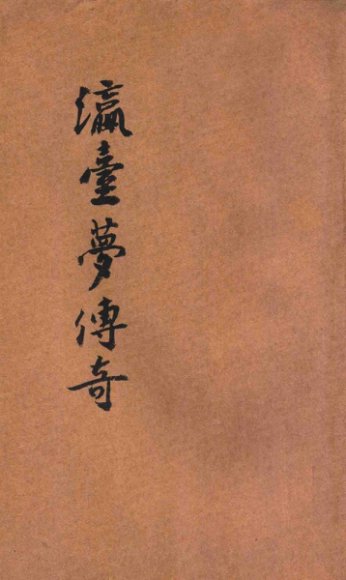 瀛臺夢傳奇